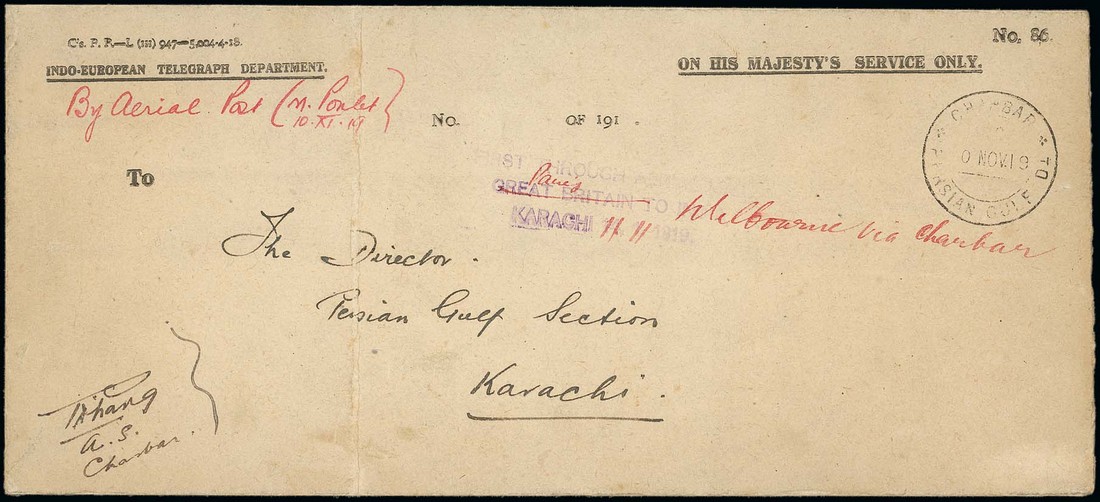 C's. P. R.—L (III) 947—5,004-4-18.
No. 86.
INDO-EUROPEAN TELEGRAPH DEPARTMENT.
ON HIS MAJESTY'S SERVICE ONLY.
By Aerial Post (M. Poulet
10.XI.19
No. OF 191 .
CHARBAR TO PERSIAN GULF
0 NOV.19
To
FIRST THROUGH
Paris
GREAT BRITAIN TO
KARACHI 1919.
Melbourne via Charbar
The Director.
Persian Gulf Section
Karachi.
A.S.
Charbar.